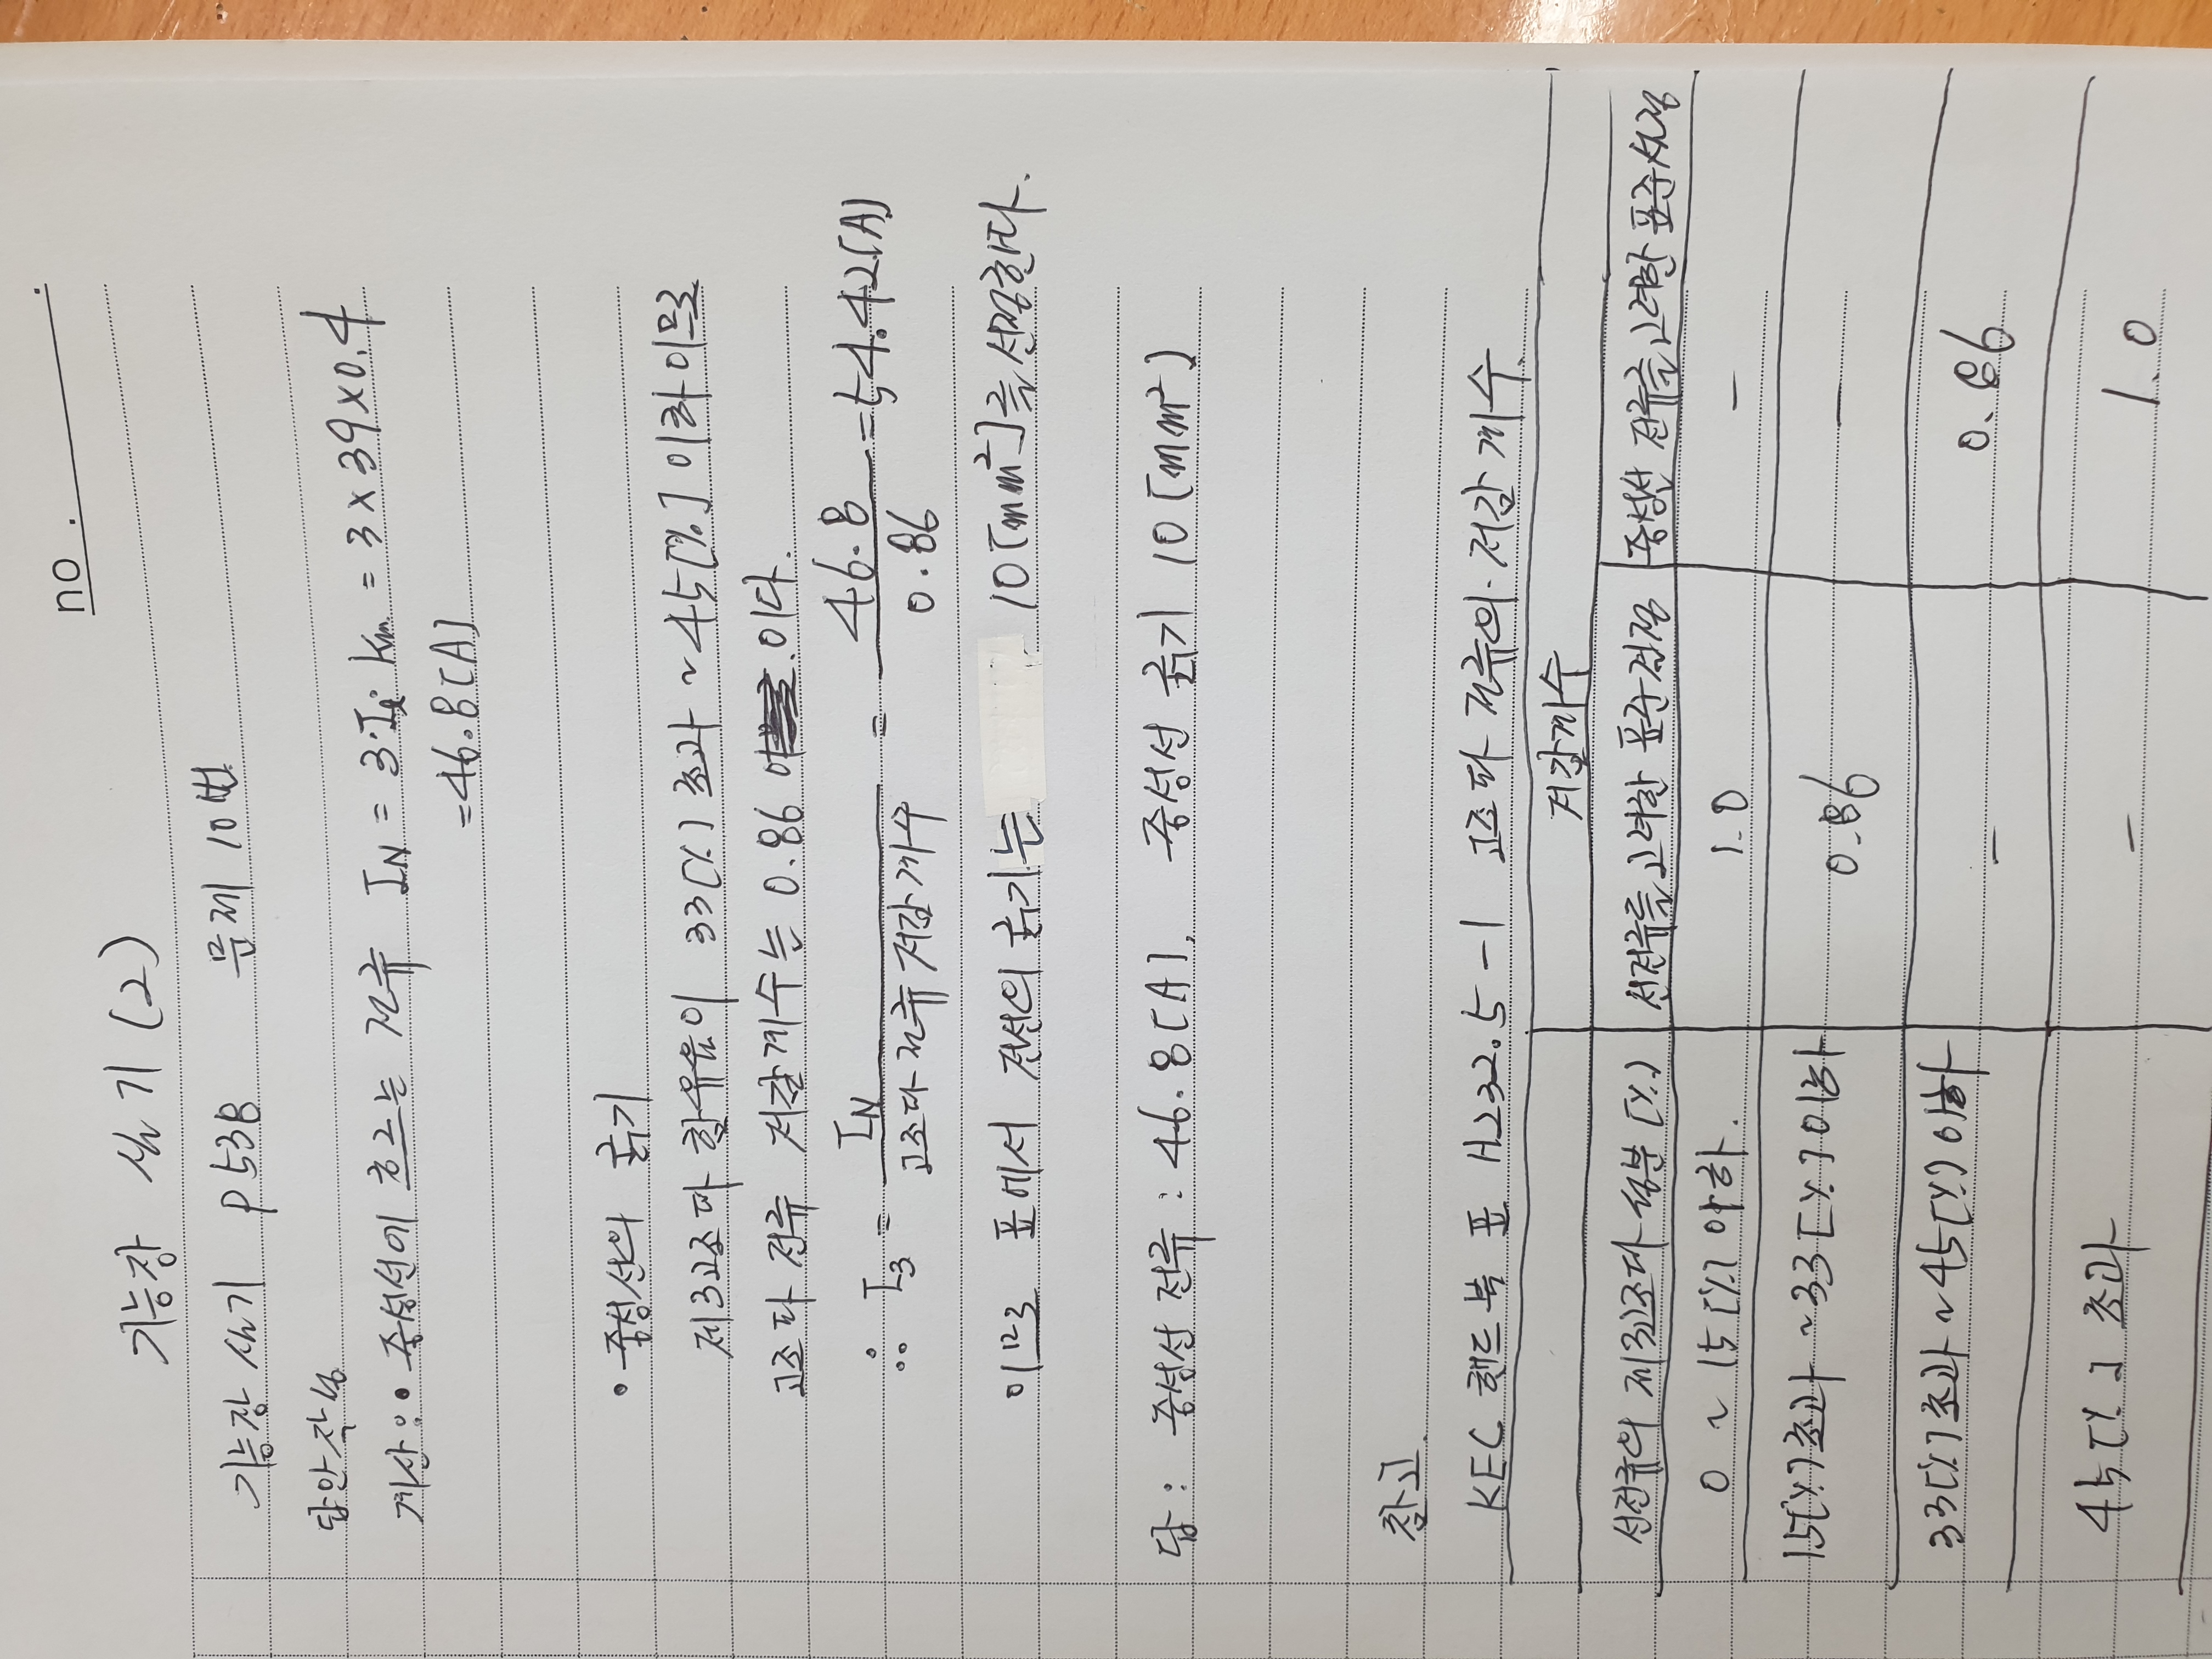 no . .
기능장 실기 (2)
기능장 실기 P 538 문제 10번
답안작성
계산 : • 중성선에 흐르는 전류 IN = 3·Iℓ·Km = 3 × 39 × 0.4
= 46.8 [A]
• 중성선의 굵기
제3고조파 함유율이 33[%] 초과 ~ 45[%] 이하 이므로
고조파 전류 저감계수는 0.86 이다.
∴ I3 = IN / 고조파 전류 저감계수 = 46.8 / 0.86 = 54.42[A]
이므로 표에서 전선의 굵기는 10[mm²]를 선정한다.
답 : 중성선 전류 : 46.8[A], 중성선 굵기 10[mm²]
참고.
KEC 핸드북 표 H232.5-1 고조파 전류의 저감 계수.
저감계수
선전류의 제3고조파 성분 [%] 선전류를 고려한 표준선정 중성선 전류를 고려한 표준선정
0 ~ 15[%] 이하. 1.0 -
15[%] 초과 ~ 33[%] 이하 0.86 -
33[%] 초과 ~ 45[%] 이하 - 0.86
45[%] 초과 - 1.0